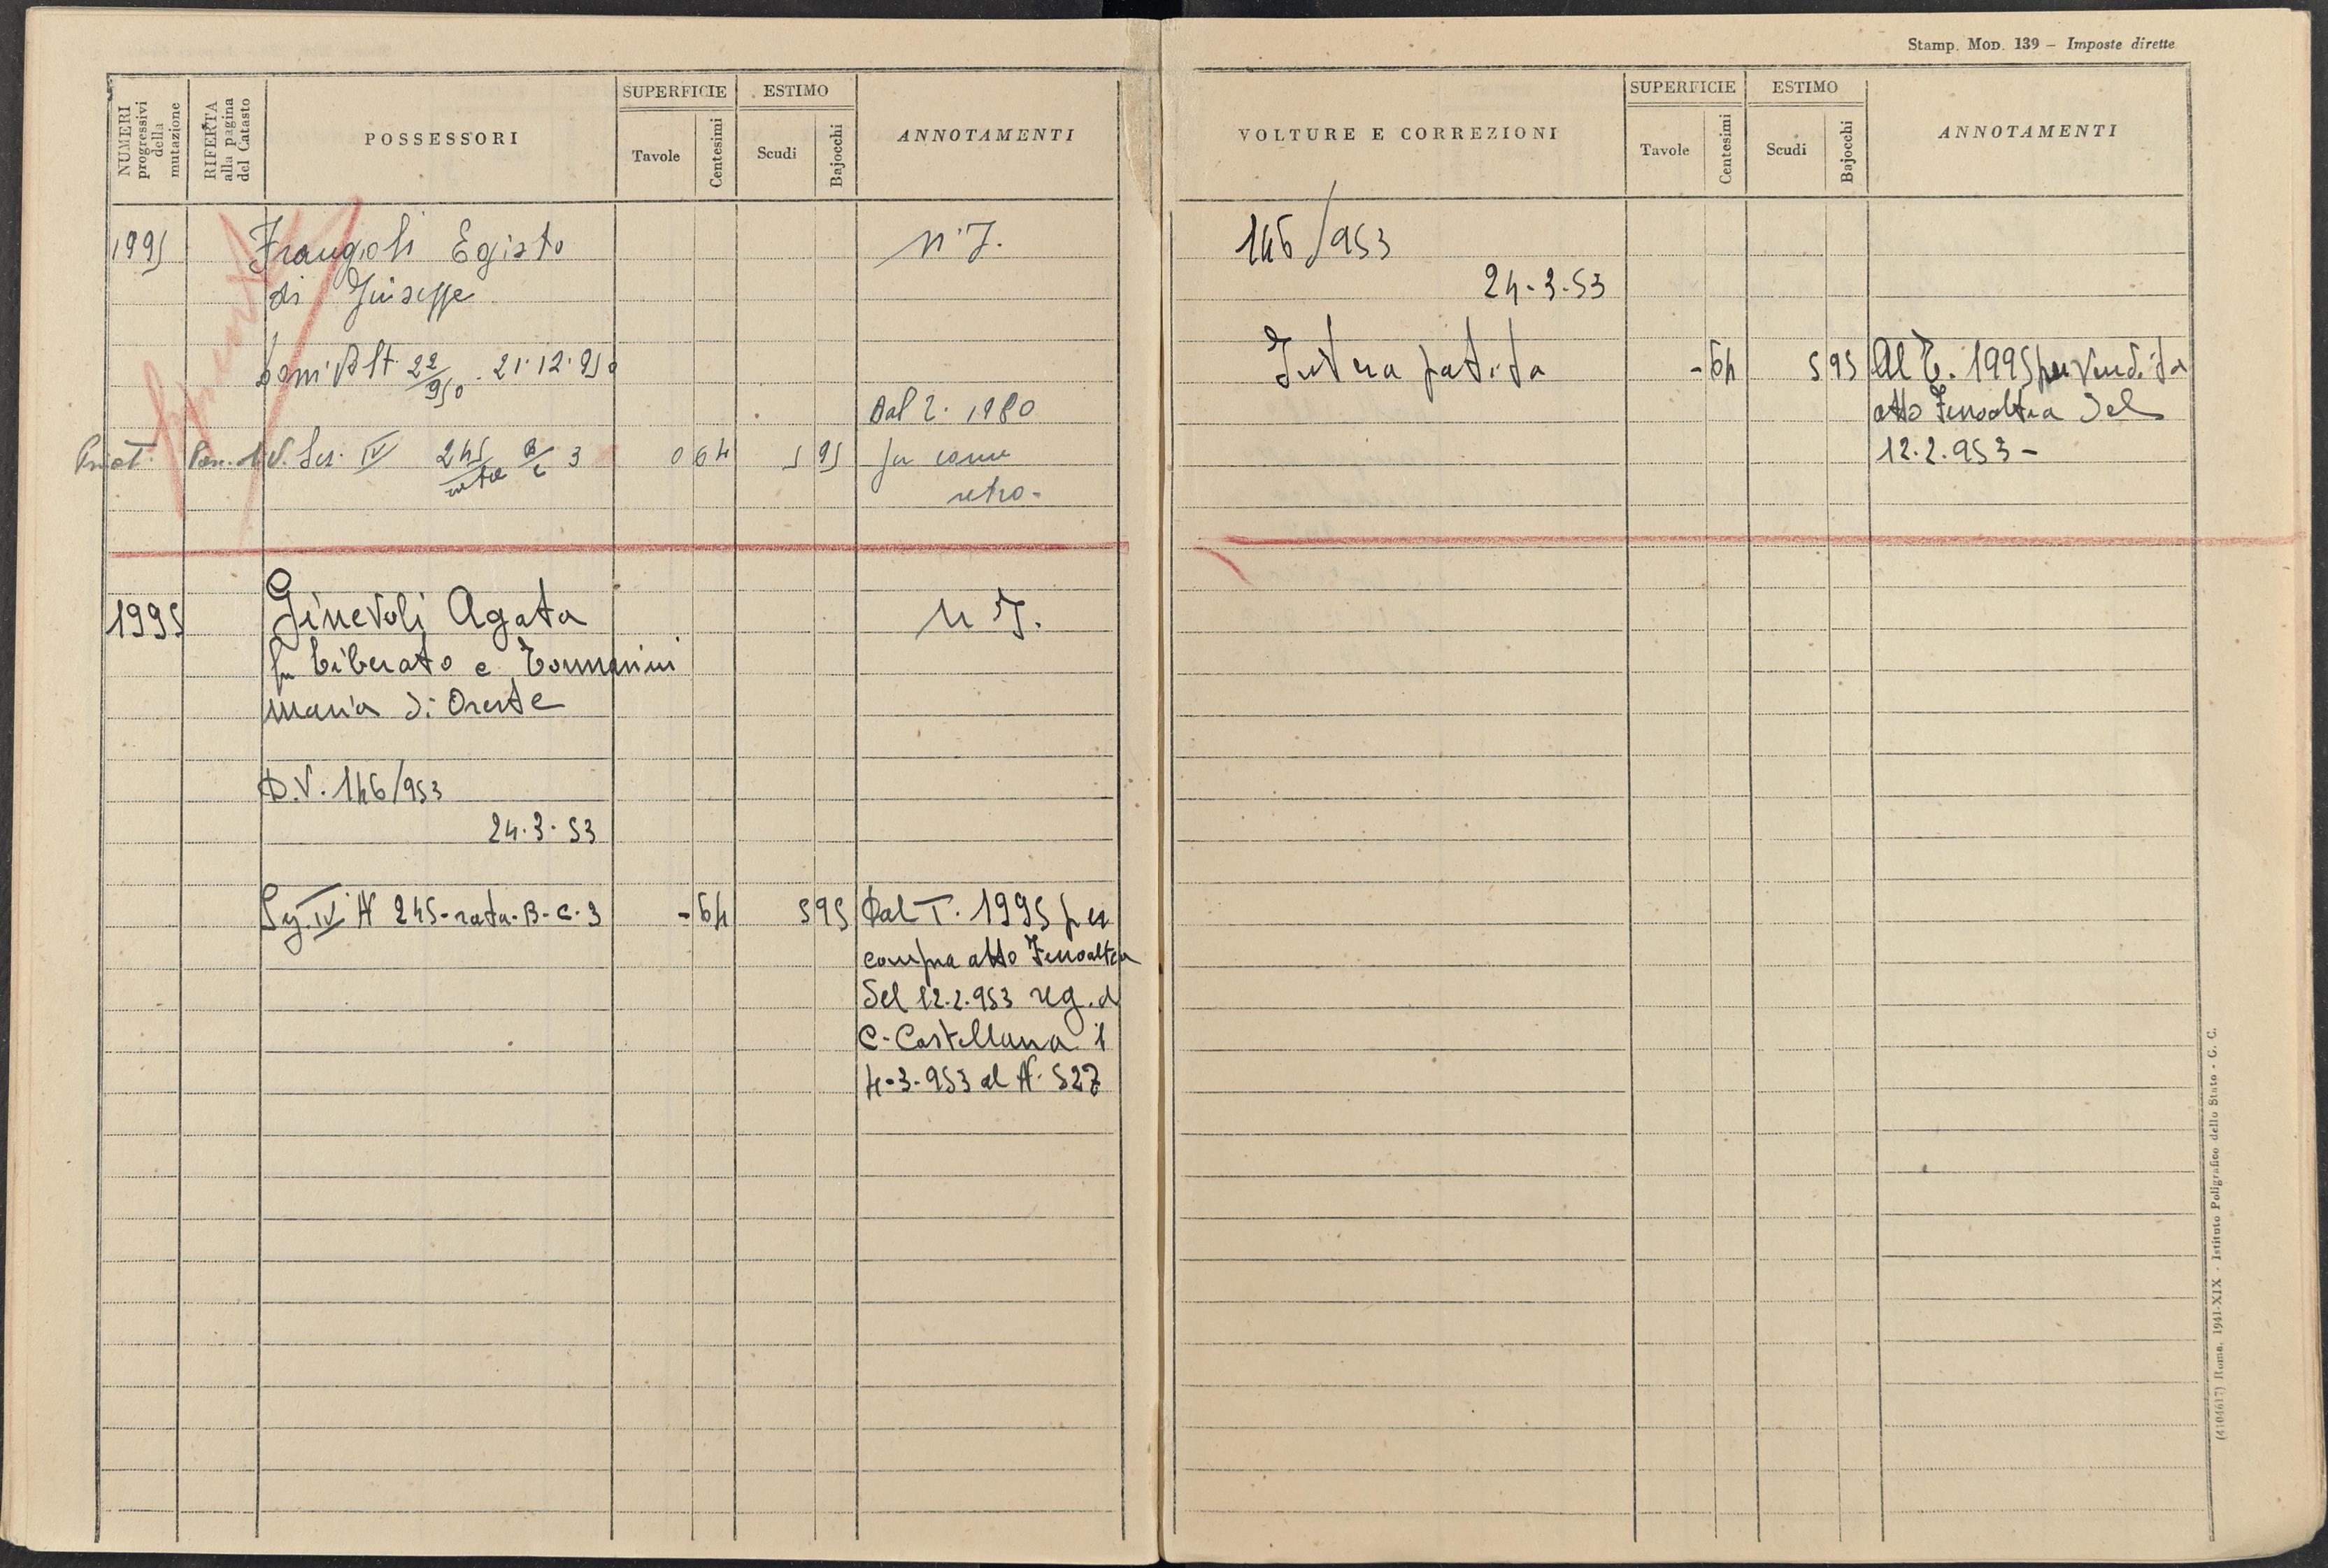 Stamp. Mod. 139 – Imposte dirette
NUMERI progressivi della mutazione
RIFERTA alla pagina del Catasto
POSSESSORI
SUPERFICIE
Tavole
Centesimi
ESTIMO
Scudi
Bajocchi
ANNOTAMENTI
VOLTURE E CORREZIONI
SUPERFICIE
Tavole
Centesimi
ESTIMO
Scudi
Bajocchi
ANNOTAMENTI
1995 Frangioli Egisto N.I.
di Giuseppe
22/950 . 21.12.950
Dal 1980
Sez. IV 245/rata B/C 3 0 64 5 95 come
retro.
146/953
24.3.53
Intera partita - 64 5 95 Al T. 1995 per vendita
atto Fenoaltea del
12.2.953 -
1995 Ginevoli Agata N.I.
fu Liberato e Tommasini
Maria di Oreste
D.V. 146/953
24.3.53
Sez. IV N 245-rata-B-C-3 - 64 5 95 Dal T. 1995 per
compra atto Fenoaltea
del 12.2.953 reg. a
C. Castellana il
4-3-953 al N. 527
(4104617) Roma, 1941-XIX - Istituto Poligrafico dello Stato - G. C.